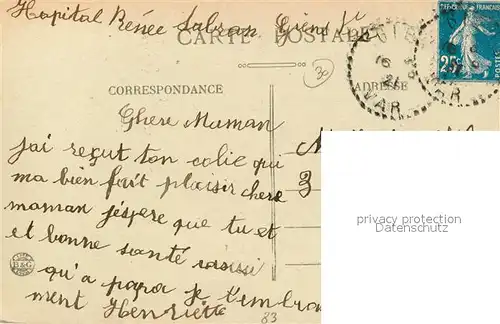 Hopital Renée Sabran Giens
CARTE POSTALE
30
25c
POSTES
16
21
VAR
CORRESPONDANCE
ADRESSE
Chere Maman
jai reçut ton colie qui
ma bien fait plaisir chere
maman j'éspere que tu et
et bonne santé
qu'a papa je t'embra
ment Henriette
3
B&G
83
privacy protection
Datenschutz